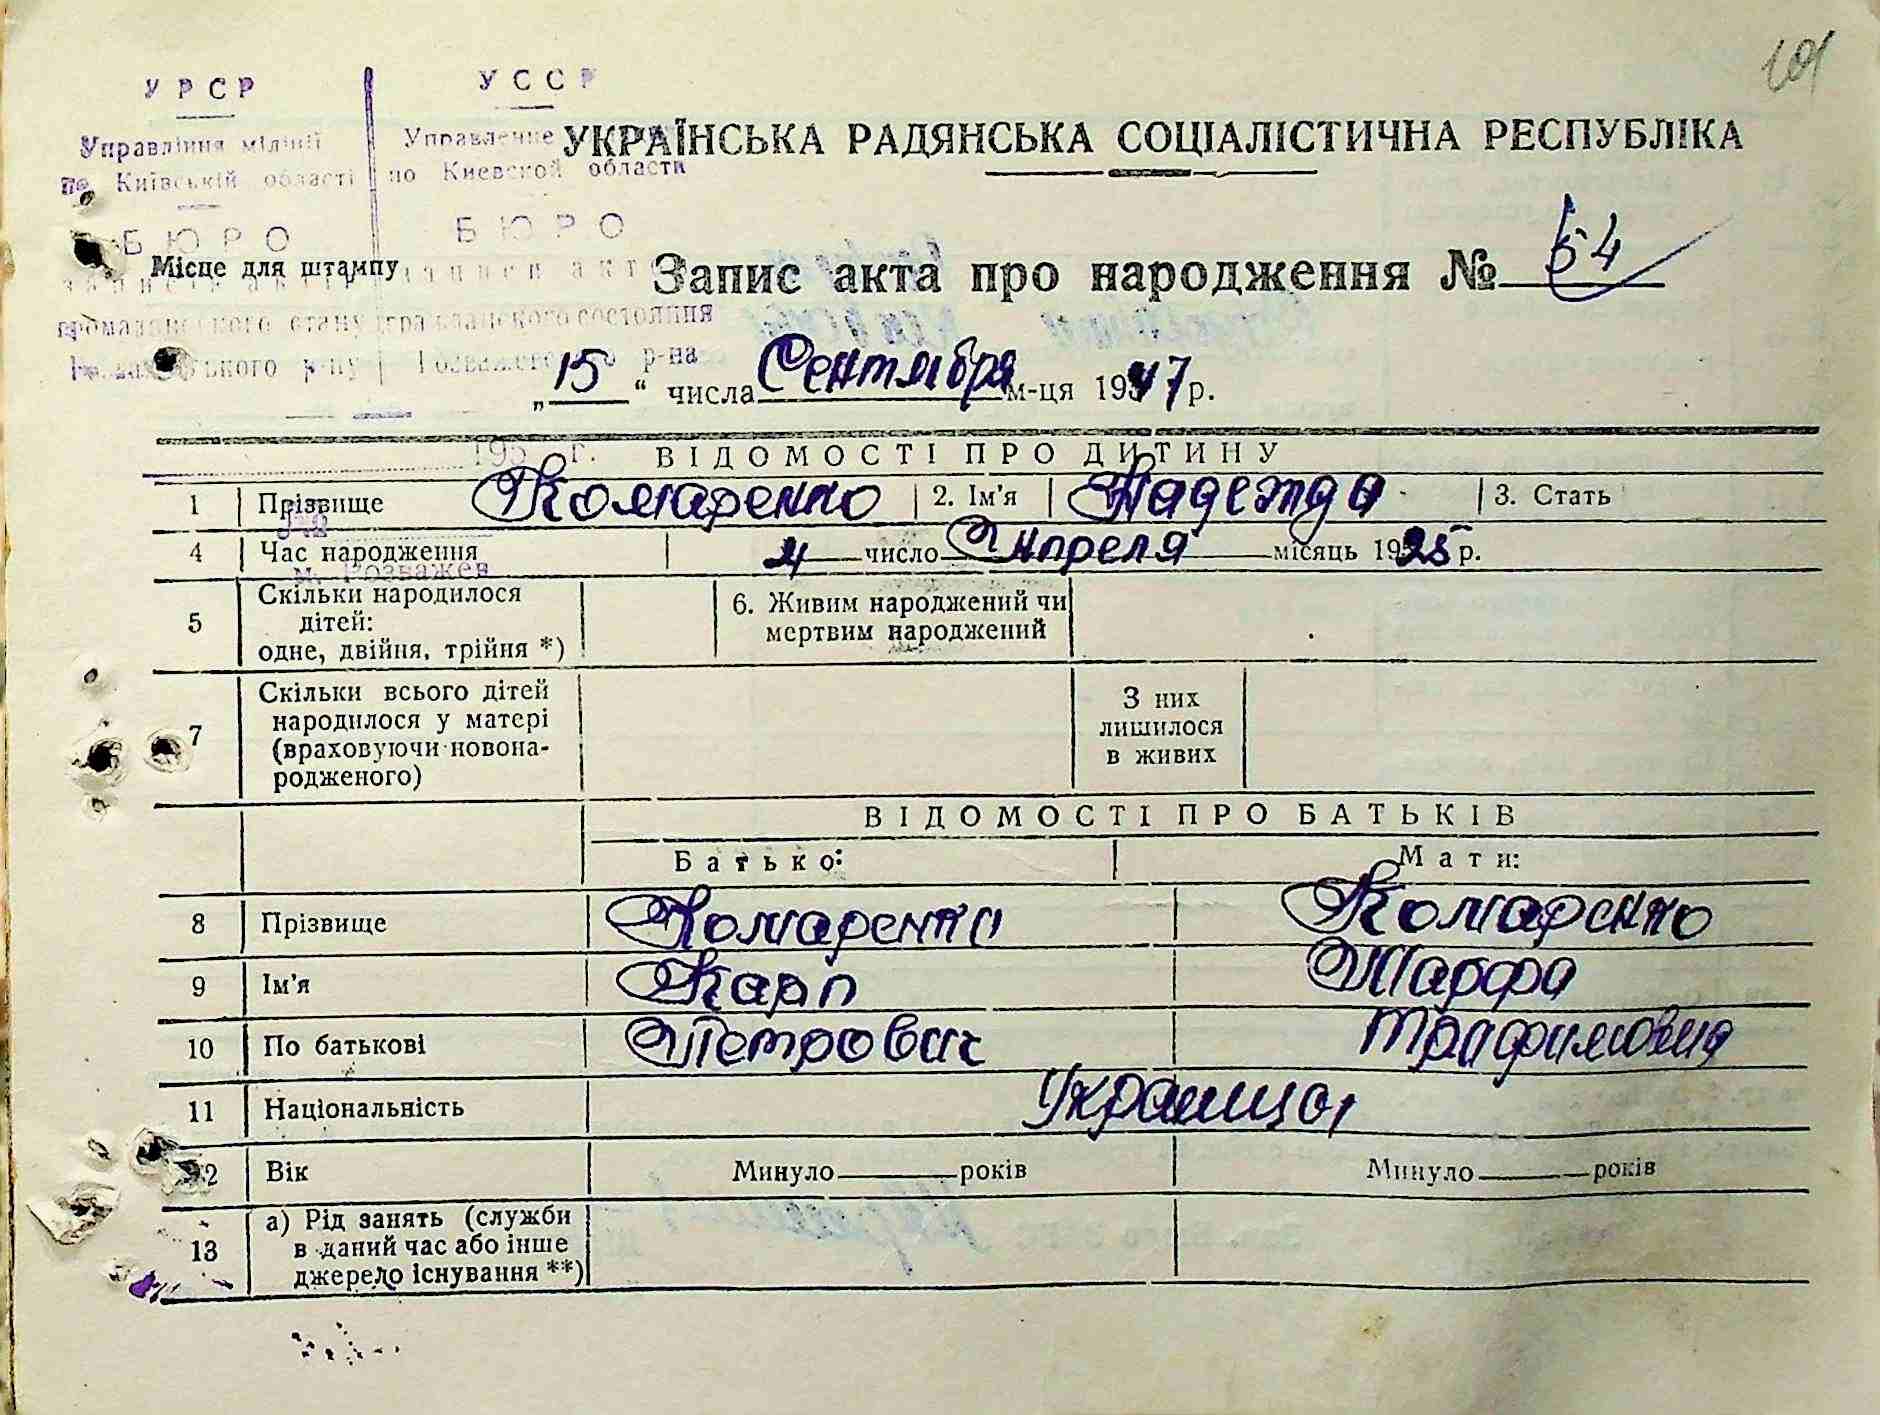 101
УРСР
Управління міліції
по Київській області
БЮРО
записів актів
громадянського стану
УССР
Управление
по Киевской области
БЮРО
записи акт
гражданского состояния
р-на
УКРАЇНСЬКА РАДЯНСЬКА СОЦІАЛІСТИЧНА РЕСПУБЛІКА
Місце для штампу
Запис акта про народження № 54
„15“ числа Сентября м-ця 1947 р.
195 г.
ВІДОМОСТІ ПРО ДИТИНУ
1 Прізвище Комаренко 2. Ім'я Надежда 3. Стать
4 Час народження 4 число Апреля місяць 1925 р.
м. Розважев
5 Скільки народилося
дітей:
одне, двійня, трійня *)
6. Живим народжений чи
мертвим народжений
7 Скільки всього дітей
народилося у матері
(враховуючи новона-
родженого)
З них
лишилося
в живих
ВІДОМОСТІ ПРО БАТЬКІВ
Батько: Мати:
8 Прізвище Комаренко Комаренко
9 Ім'я Карп Марфа
10 По батькові Петрович Трифимовна
11 Національність Украинцы
12 Вік Минуло років Минуло років
13 а) Рід занять (служби
в даний час або інше
джерело існування **)